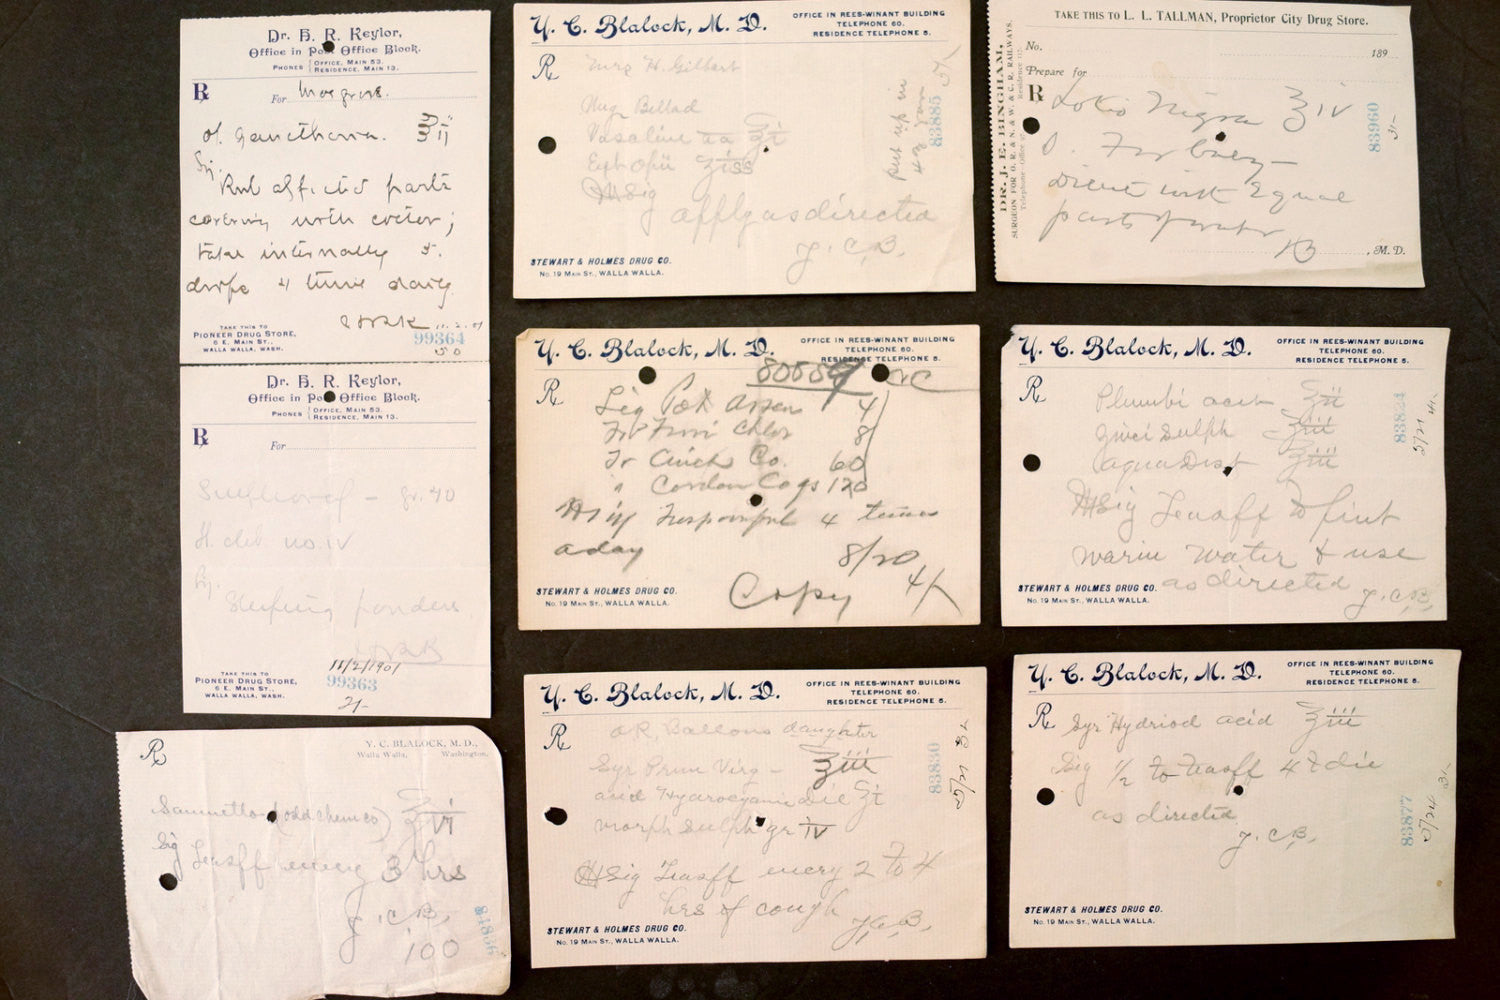 Dr. H. R. Keylor,
Office in Post Office Block.
PHONES { OFFICE, MAIN 53.
RESIDENCE, MAIN 13.
℞ For
Rub affected parts
covering with cotton;
take internally 5
drops 4 times daily
11.2.01
TAKE THIS TO
PIONEER DRUG STORE,
6 E. MAIN ST.,
WALLA WALLA, WASH.
99364
50
Dr. H. R. Keylor,
Office in Post Office Block.
PHONES { OFFICE, MAIN 53.
RESIDENCE, MAIN 13.
℞ For
Sulphonal – gr. 40
No. IV
Sleeping powders
HRK
11/2/1901
TAKE THIS TO
PIONEER DRUG STORE,
6 E. MAIN ST.,
WALLA WALLA, WASH.
99363
℞
Y. C. BLALOCK, M. D.,
Walla Walla, Washington.
Sanmetto (odd chem co) ℥VI
Sig Teasff every 3 hrs
Y. C. B.
100
84856
Y. C. Blalock, M. D.
OFFICE IN REES-WINANT BUILDING
TELEPHONE 60.
RESIDENCE TELEPHONE 5.
℞ Mrs H. Gilbert
Ung Bellad
Vasaline aa ℥i
Ext Opii ʒiss
Sig
apply as directed
Y. C. B.
put up in
83885
STEWART & HOLMES DRUG CO.
NO. 19 MAIN ST., WALLA WALLA.
Y. C. Blalock, M. D.
OFFICE IN REES-WINANT BUILDING
TELEPHONE 60.
RESIDENCE TELEPHONE 5.
80559
℞ Liq Pot Arsen 4
Tr Ferri Chlor 8
Tr Cinch Co. 60
" Cardam Co qs 120
Sig Teaspoonful 4 times
a day
8/20
Copy
STEWART & HOLMES DRUG CO.
NO. 19 MAIN ST., WALLA WALLA.
Y. C. Blalock, M. D.
OFFICE IN REES-WINANT BUILDING
TELEPHONE 60.
RESIDENCE TELEPHONE 5.
℞
daughter
Syr Prun Virg – ℥iii
acid Hydrocyanic dil ʒi
morph Sulph gr iv
Sig Teasff every 2 to 4
hrs if cough
Y. C. B.
83830
5/21
STEWART & HOLMES DRUG CO.
NO. 19 MAIN ST., WALLA WALLA.
TAKE THIS TO L. L. TALLMAN, Proprietor City Drug Store.
DR. J. E. BINGHAM,
SURGEON FOR O. R. & N. & W. & C. R. RAILWAYS.
No. 189
Prepare for
℞ Lotio Nigra ℥IV
Dilute with Equal
parts of water
M. D.
83960
Y. C. Blalock, M. D.
OFFICE IN REES-WINANT BUILDING
TELEPHONE 60.
RESIDENCE TELEPHONE 5.
℞ Plumbi acet
Zinci Sulph
aqua Dist
Sig Teasff to pint
warm water & use
as directed
Y. C. B.
5/21
STEWART & HOLMES DRUG CO.
NO. 19 MAIN ST., WALLA WALLA.
Y. C. Blalock, M. D.
OFFICE IN REES-WINANT BUILDING
TELEPHONE 60.
RESIDENCE TELEPHONE 5.
℞ Syr Hydriod acid ℥iii
Sig ½ to teasff 4 t die
as directed
Y. C. B.
83877
5/24
STEWART & HOLMES DRUG CO.
NO. 19 MAIN ST., WALLA WALLA.